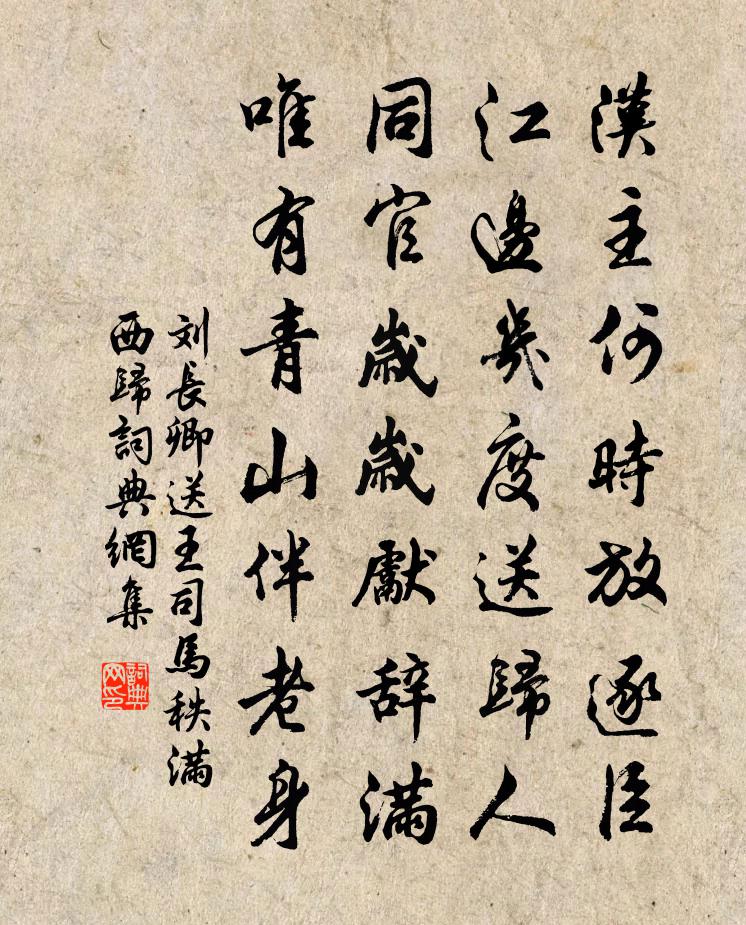 漢主何時放逐臣
江邊幾度送歸人
同官歲歲獻辞滿
唯有青山伴老身
刘長卿送王司馬秩滿
西歸詞典網集
詞典
网印